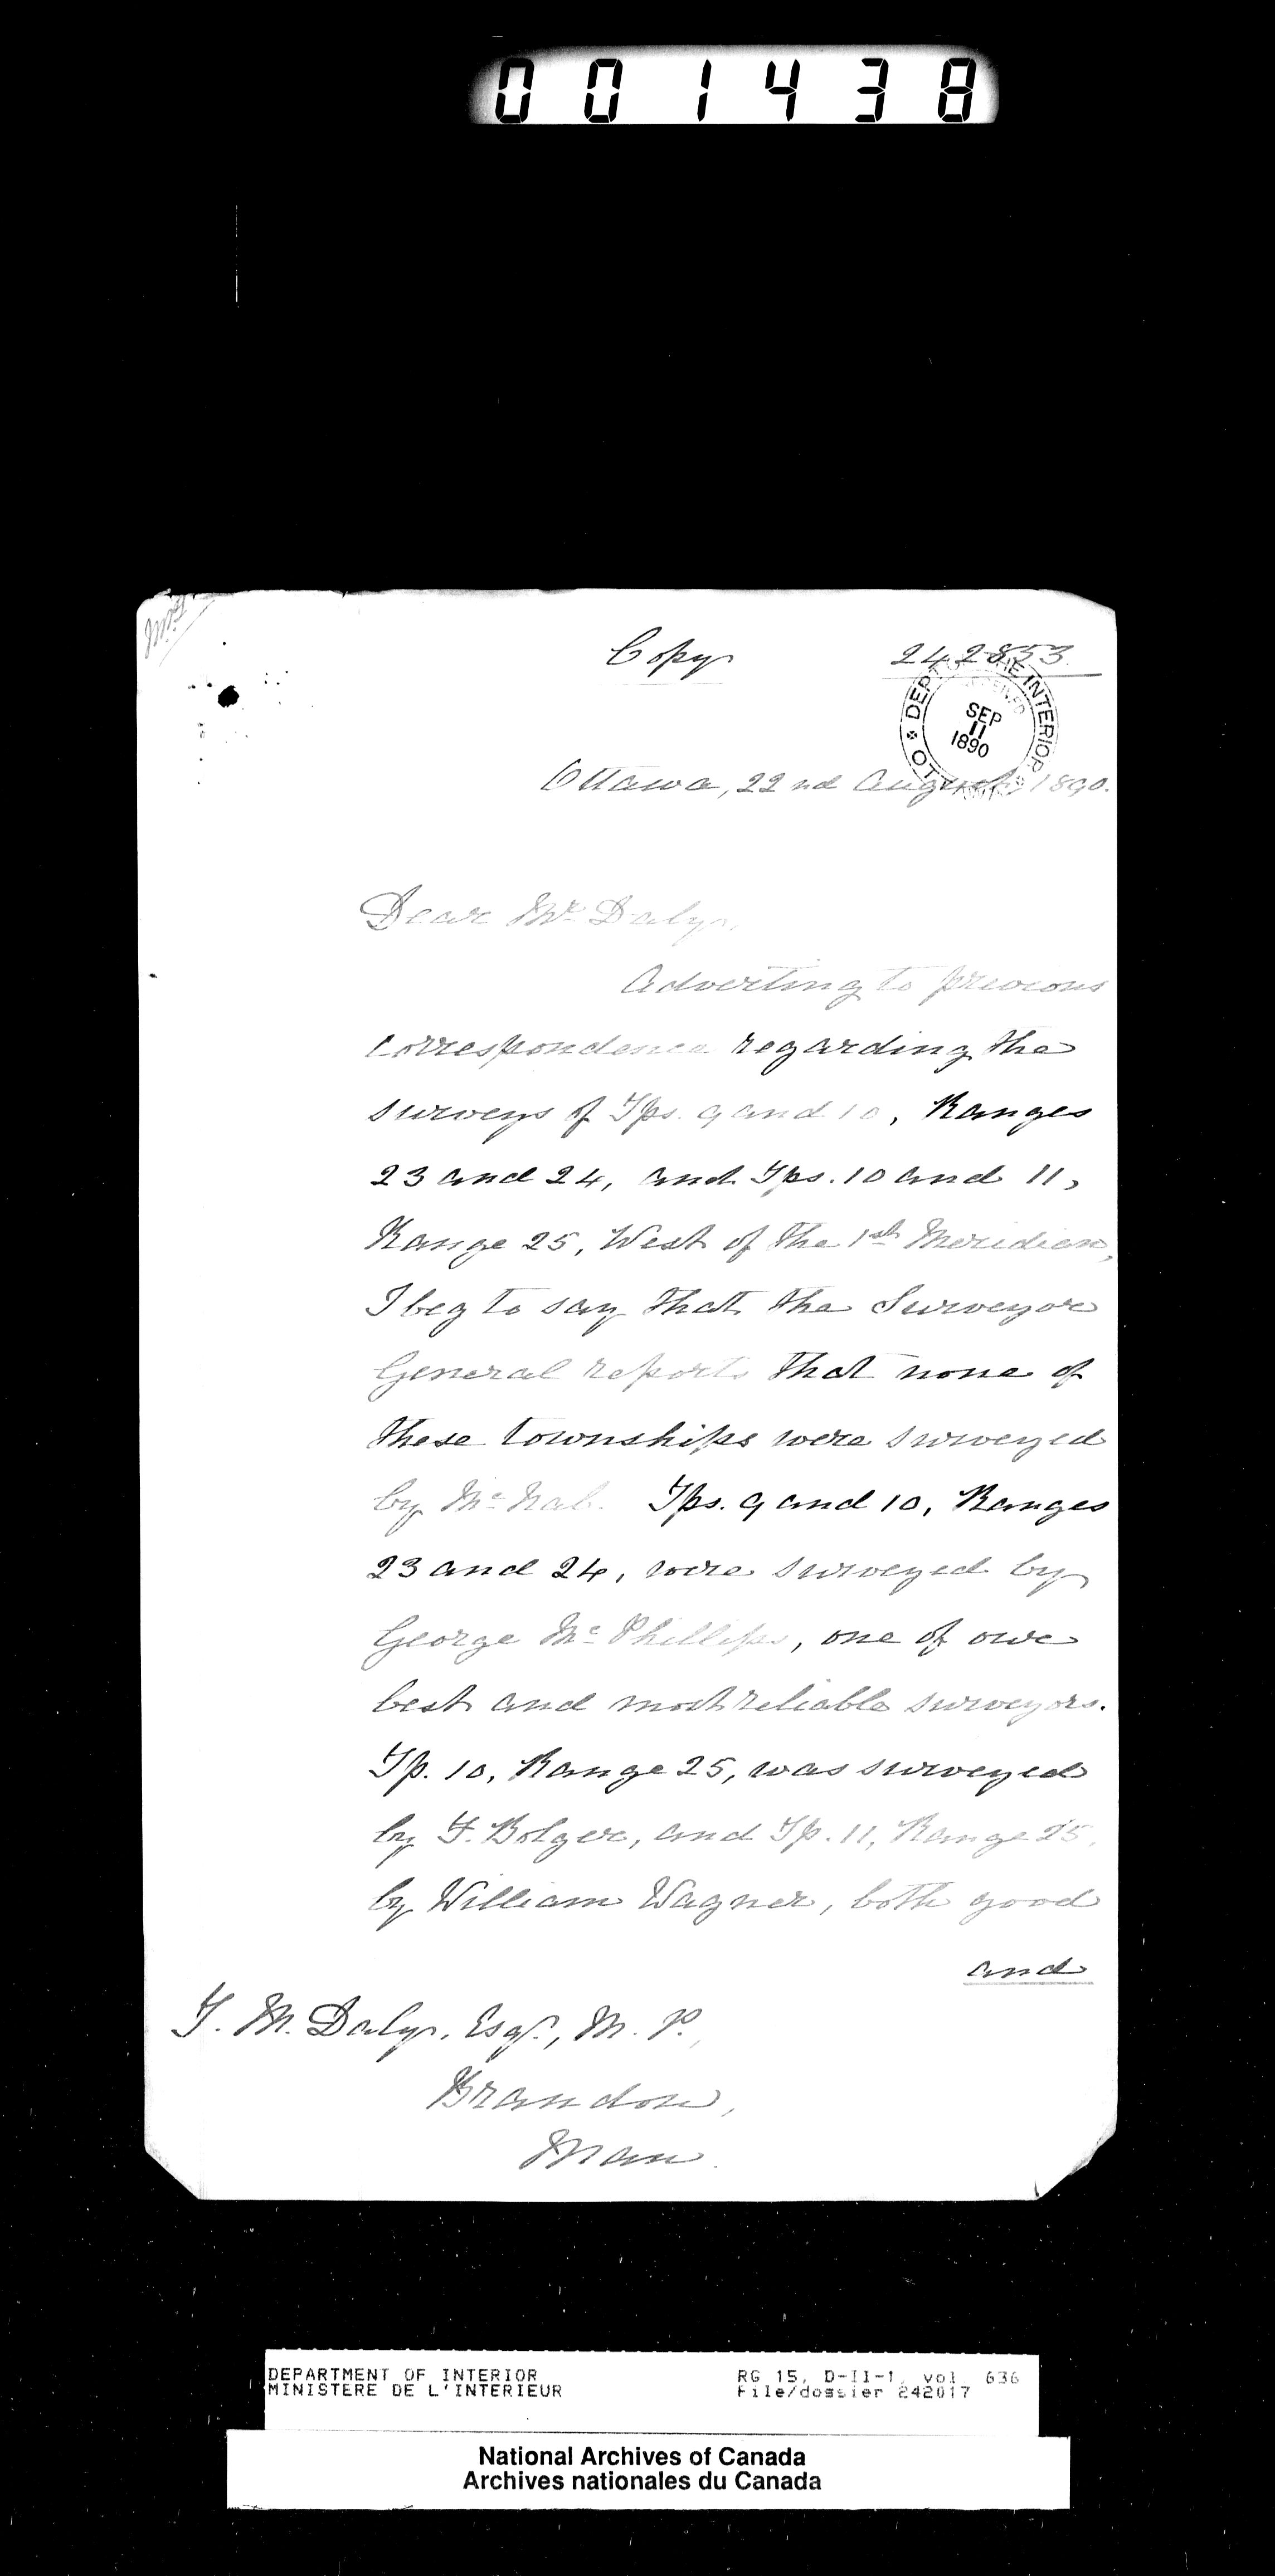 001438
Copy
242853
DEPT. OF THE INTERIOR
RECEIVED
SEP
11
1890
OTTAWA
Ottawa, 22nd August, 1890.
Dear Mr. Daly,
Adverting to previous
correspondence regarding the
surveys of Tps. 9 and 10, Ranges
23 and 24, and Tps. 10 and 11,
Range 25, West of the 1st Meridian,
I beg to say that the Surveyor
General reports that none of
these townships were surveyed
by McNab. Tps. 9 and 10, Ranges
23 and 24, were surveyed by
George McPhillips, one of our
best and most reliable surveyors.
Tp. 10, Range 25, was surveyed
by F. Bolger, and Tp. 11, Range 25,
by William Wagner, both good
and
T. M. Daly, Esqr., M. P.,
Brandon,
Man.
DEPARTMENT OF INTERIOR
MINISTERE DE L'INTERIEUR
RG 15, D-II-1, vol. 636
File/dossier 242017
National Archives of Canada
Archives nationales du Canada